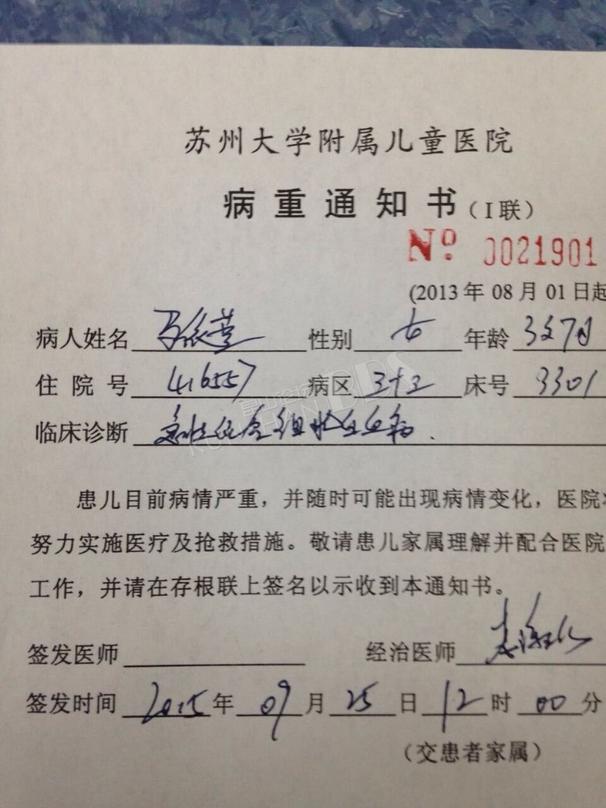 苏州大学附属儿童医院
病重通知书(I联)
Nº 0021901
(2013年08月01日起
病人姓名 性别 女 年龄 3岁7月
住院号 416557 病区 3+3 床号 3301
临床诊断 急性 白血病.
患儿目前病情严重,并随时可能出现病情变化,医院
努力实施医疗及抢救措施。敬请患儿家属理解并配合医院
工作,并请在存根联上签名以示收到本通知书。
签发医师 经治医师
签发时间 2015年09月25日12时00分
(交患者家属)